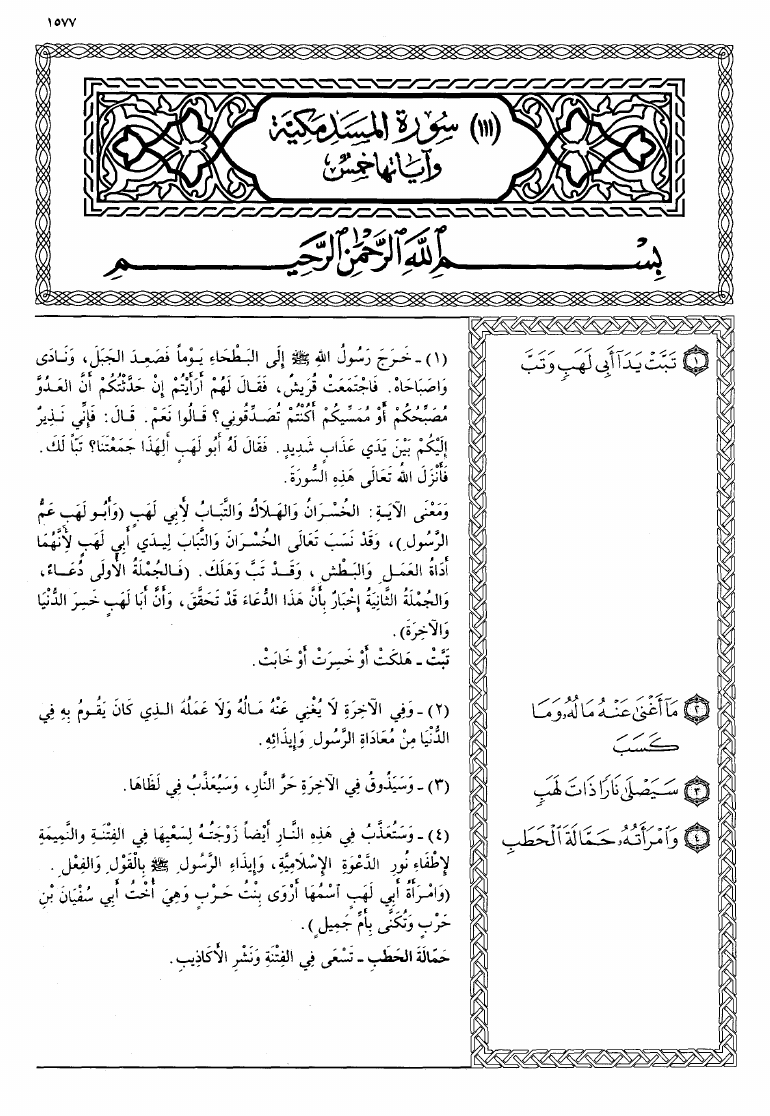 ١٥٧٧
(١١١) سُورَة المَسَد مَكيَّة
وآيَاتها خمسٌ
بِسْمِ ٱللَّهِ ٱلرَّحْمَٰنِ ٱلرَّحِيمِ
تَبَّتْ يَدَآ أَبِي لَهَبٍ وَتَبَّ ①
(١) - خَرَجَ رَسُولُ اللهِ ﷺ إِلَى البَطْحَاءِ يَوْماً فَصَعِدَ الجَبَلَ، وَنَادَى
وَاصَبَاحَاهْ. فَاجْتَمَعَتْ قُرَيشٌ، فَقَالَ لَهُمْ أَرَأَيْتُمْ إِنْ حَدَّثْتُكُمْ أَنَّ العَدُوَّ
مُصَبِّحُكُمْ أَوْ مُمَسِّيكُمْ أَكُنْتُمْ تُصَدِّقُونِي؟ قَالُوا نَعَمْ. قَالَ: فَإِنِّي نَذِيرٌ
إِلَيْكُمْ بَيْنَ يَدَي عَذَابٍ شَدِيدٍ. فَقَالَ لَهُ أَبُو لَهَبٍ أَلِهَذَا جَمَعْتَنَا؟ تَبّاً لَكَ.
فَأَنْزَلَ اللهُ تَعَالَى هَذِهِ السُّورَةَ.
وَمَعْنَى الآيَةِ: الخُسْرَانُ وَالهَلاَكُ وَالتَّبَابُ لأَِبِي لَهَبٍ (وَأَبُو لَهَبٍ عَمُّ
الرَّسُولِ)، وَقَدْ نَسَبَ تَعَالَى الخُسْرَانَ وَالتَّبَابَ لِيَدَي أَبِي لَهَبٍ لأَِنَّهُمَا
أَدَاةُ العَمَلِ وَالبَطْشِ، وَقَدْ تَبَّ وَهَلَكَ. (فَالجُمْلَةُ الأُولَى دُعَاءٌ،
وَالجُمْلَةُ الثَّانِيَةُ إِخْبَارٌ بِأَنَّ هَذَا الدُّعَاءَ قَدْ تَحَقَّقَ، وَأَنَّ أَبَا لَهَبٍ خَسِرَ الدُّنْيَا
وَالآخِرَةَ).
تَبَّتْ - هَلَكَتْ أَوْ خَسِرَتْ أَوْ خَابَتْ.
مَآ أَغْنَىٰ عَنْهُ مَالُهُۥ وَمَا ②
كَسَبَ
(٢) - وَفِي الآخِرَةِ لاَ يُغْنِي عَنْهُ مَالُهُ وَلاَ عَمَلُهُ الذِي كَانَ يَقُومُ بِهِ فِي
الدُّنْيَا مِنْ مُعَادَاةِ الرَّسُولِ وَإِيذَائِهِ.
سَيَصْلَىٰ نَارًا ذَاتَ لَهَبٍ ③
(٣) - وَسَيَذُوقُ فِي الآخِرَةِ حَرَّ النَّارِ، وَسَيُعَذَّبُ فِي لَظَاهَا.
وَٱمْرَأَتُهُۥ حَمَّالَةَ ٱلْحَطَبِ ④
(٤) - وَسَتُعَذَّبُ فِي هَذِهِ النَّارِ أَيْضاً زَوْجَتُهُ لِسَعْيِهَا فِي الفِتْنَةِ وَالنَّمِيمَةِ
لإِطْفَاءِ نُورِ الدَّعْوَةِ الإِسْلاَمِيَّةِ، وَإِيذَاءِ الرَّسُولِ ﷺ بِالْقَوْلِ وَالفِعْلِ.
(وَامْرَأَةُ أَبِي لَهَبٍ اسْمُهَا أَرْوَى بِنْتُ حَرْبٍ وَهِيَ أُخْتُ أَبِي سُفْيَانَ بْنِ
حَرْبٍ وَتُكَنَّى بِأُمِّ جَمِيلٍ).
حَمَّالَةَ الحَطَبِ - تَسْعَى فِي الفِتْنَةِ وَنَشْرِ الأَكَاذِيبِ.